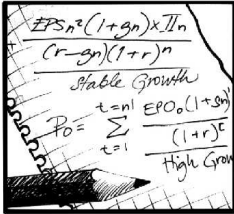 EPSn²(1+gn)×Πn
(r-gn)(1+r)ⁿ
Stable Growth
t=n EPO₀(1+gn)ᵗ
P₀= Σ
t=1 (1+r)ᵗ
High Grow